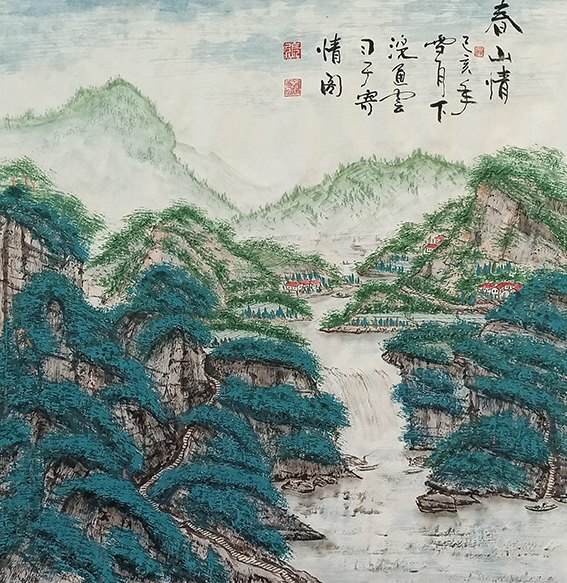 春山情
己亥年
雪月下
浣鱼云
日子寄
情阁